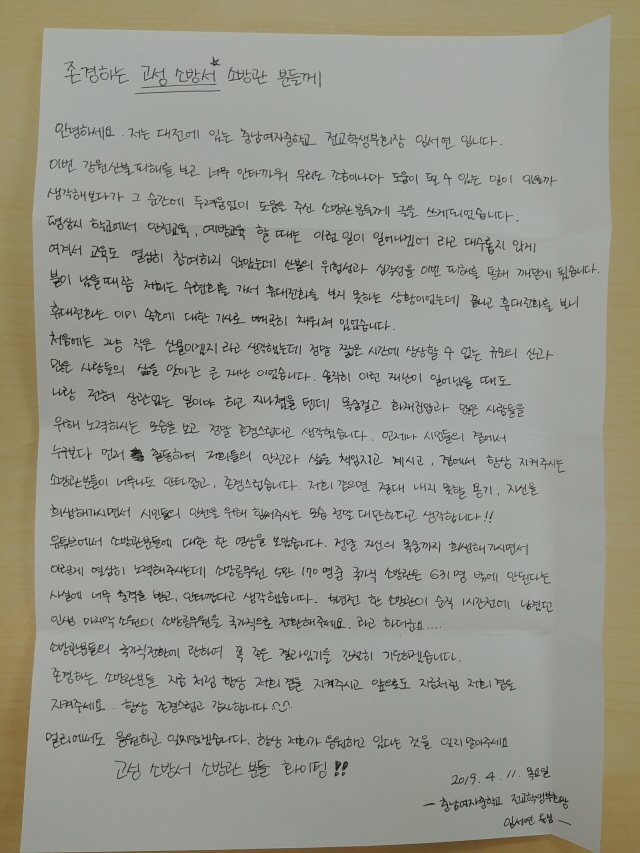 존경하는 고성 소방서 소방관 분들께
안녕하세요. 저는 대전에 있는 충남여자중학교 전교학생부회장 임서연 입니다.
이번 강원산불피해를 보고 너무 안타까워 우리도 조금이나마 도움이 될 수 있는 일이 있을까
생각해보다가 그 순간에 두려움없이 도움을 주신 소방관분들께 글을 쓰게되었습니다.
평상시 학교에서 안전교육, 예방교육 할 때는 이런 일이 일어나겠어 라고 대수롭지 않게
여겨서 교육도 열심히 참여하지 않았는데 산불의 위험성과 심각성을 이번 피해를 통해 깨닫게 됬습니다.
불이 났을때쯤 저희는 수련회를 가서 휴대전화를 보지 못하는 상황이었는데 끝나고 휴대전화를 보니
휴대전화는 이미 속초에 대한 기사로 빼곡히 채워져 있었습니다.
처음에는 그냥 작은 산불이겠지 라고 생각했는데 정말 짧은 시간에 상상할 수 없는 규모의 산과
많은 사람들의 삶을 앗아간 큰 재난 이었습니다. 솔직히 이런 재난이 일어났을 때도
나랑 전혀 상관없는 일이야 하고 지나쳤을 텐데 목숨걸고 화재진압과 많은 사람들을
위해 노력하시는 모습을 보고 정말 존경스럽다고 생각했습니다. 언제나 시민들의 곁에서
누구보다 먼저 출동하여 저희들의 안전과 삶을 책임지고 계시고, 곁에서 항상 지켜주시는
소방관분들이 너무나도 안타깝고, 존경스럽습니다. 저희 같으면 절대 내지 못할 용기, 자신을
희생해가시면서 시민들의 안전을 위해 힘써주시는 모습 정말 대단하다고 생각합니다!!
유튜브에서 소방관분들에 대한 한 영상을 보았습니다. 정말 자신의 목숨까지 희생해가시면서
이렇게 열심히 노력해주시는데 소방공무원 5만 170명중 국가직 소방관은 631명 밖에 안된다는
사실에 너무 충격을 받고, 안타깝다고 생각했습니다. 몇년전 한 소방관이 순직 1시간전에 남겼던
인생 마지막 소원이 소방공무원을 국가직으로 전환해주세요. 라고 하더군요....
소방관분들의 국가직전환에 관하여 꼭 좋은 결과있기를 간절히 기도하겠습니다.
존경하는 소방관분들 지금 처럼 항상 저희 곁을 지켜주시고 앞으로도 지금처럼 저희 곁을
지켜주세요. 항상 존경스럽고 감사합니다 ^^
멀리에서도 응원하고 잊지않겠습니다. 항상 저희가 응원하고 있다는 것을 잊지 말아주세요
고성 소방서 소방관 분들 화이팅!!
2019. 4. 11. 목요일
- 충남여자중학교 전교학생부회장
임서연 올림 -